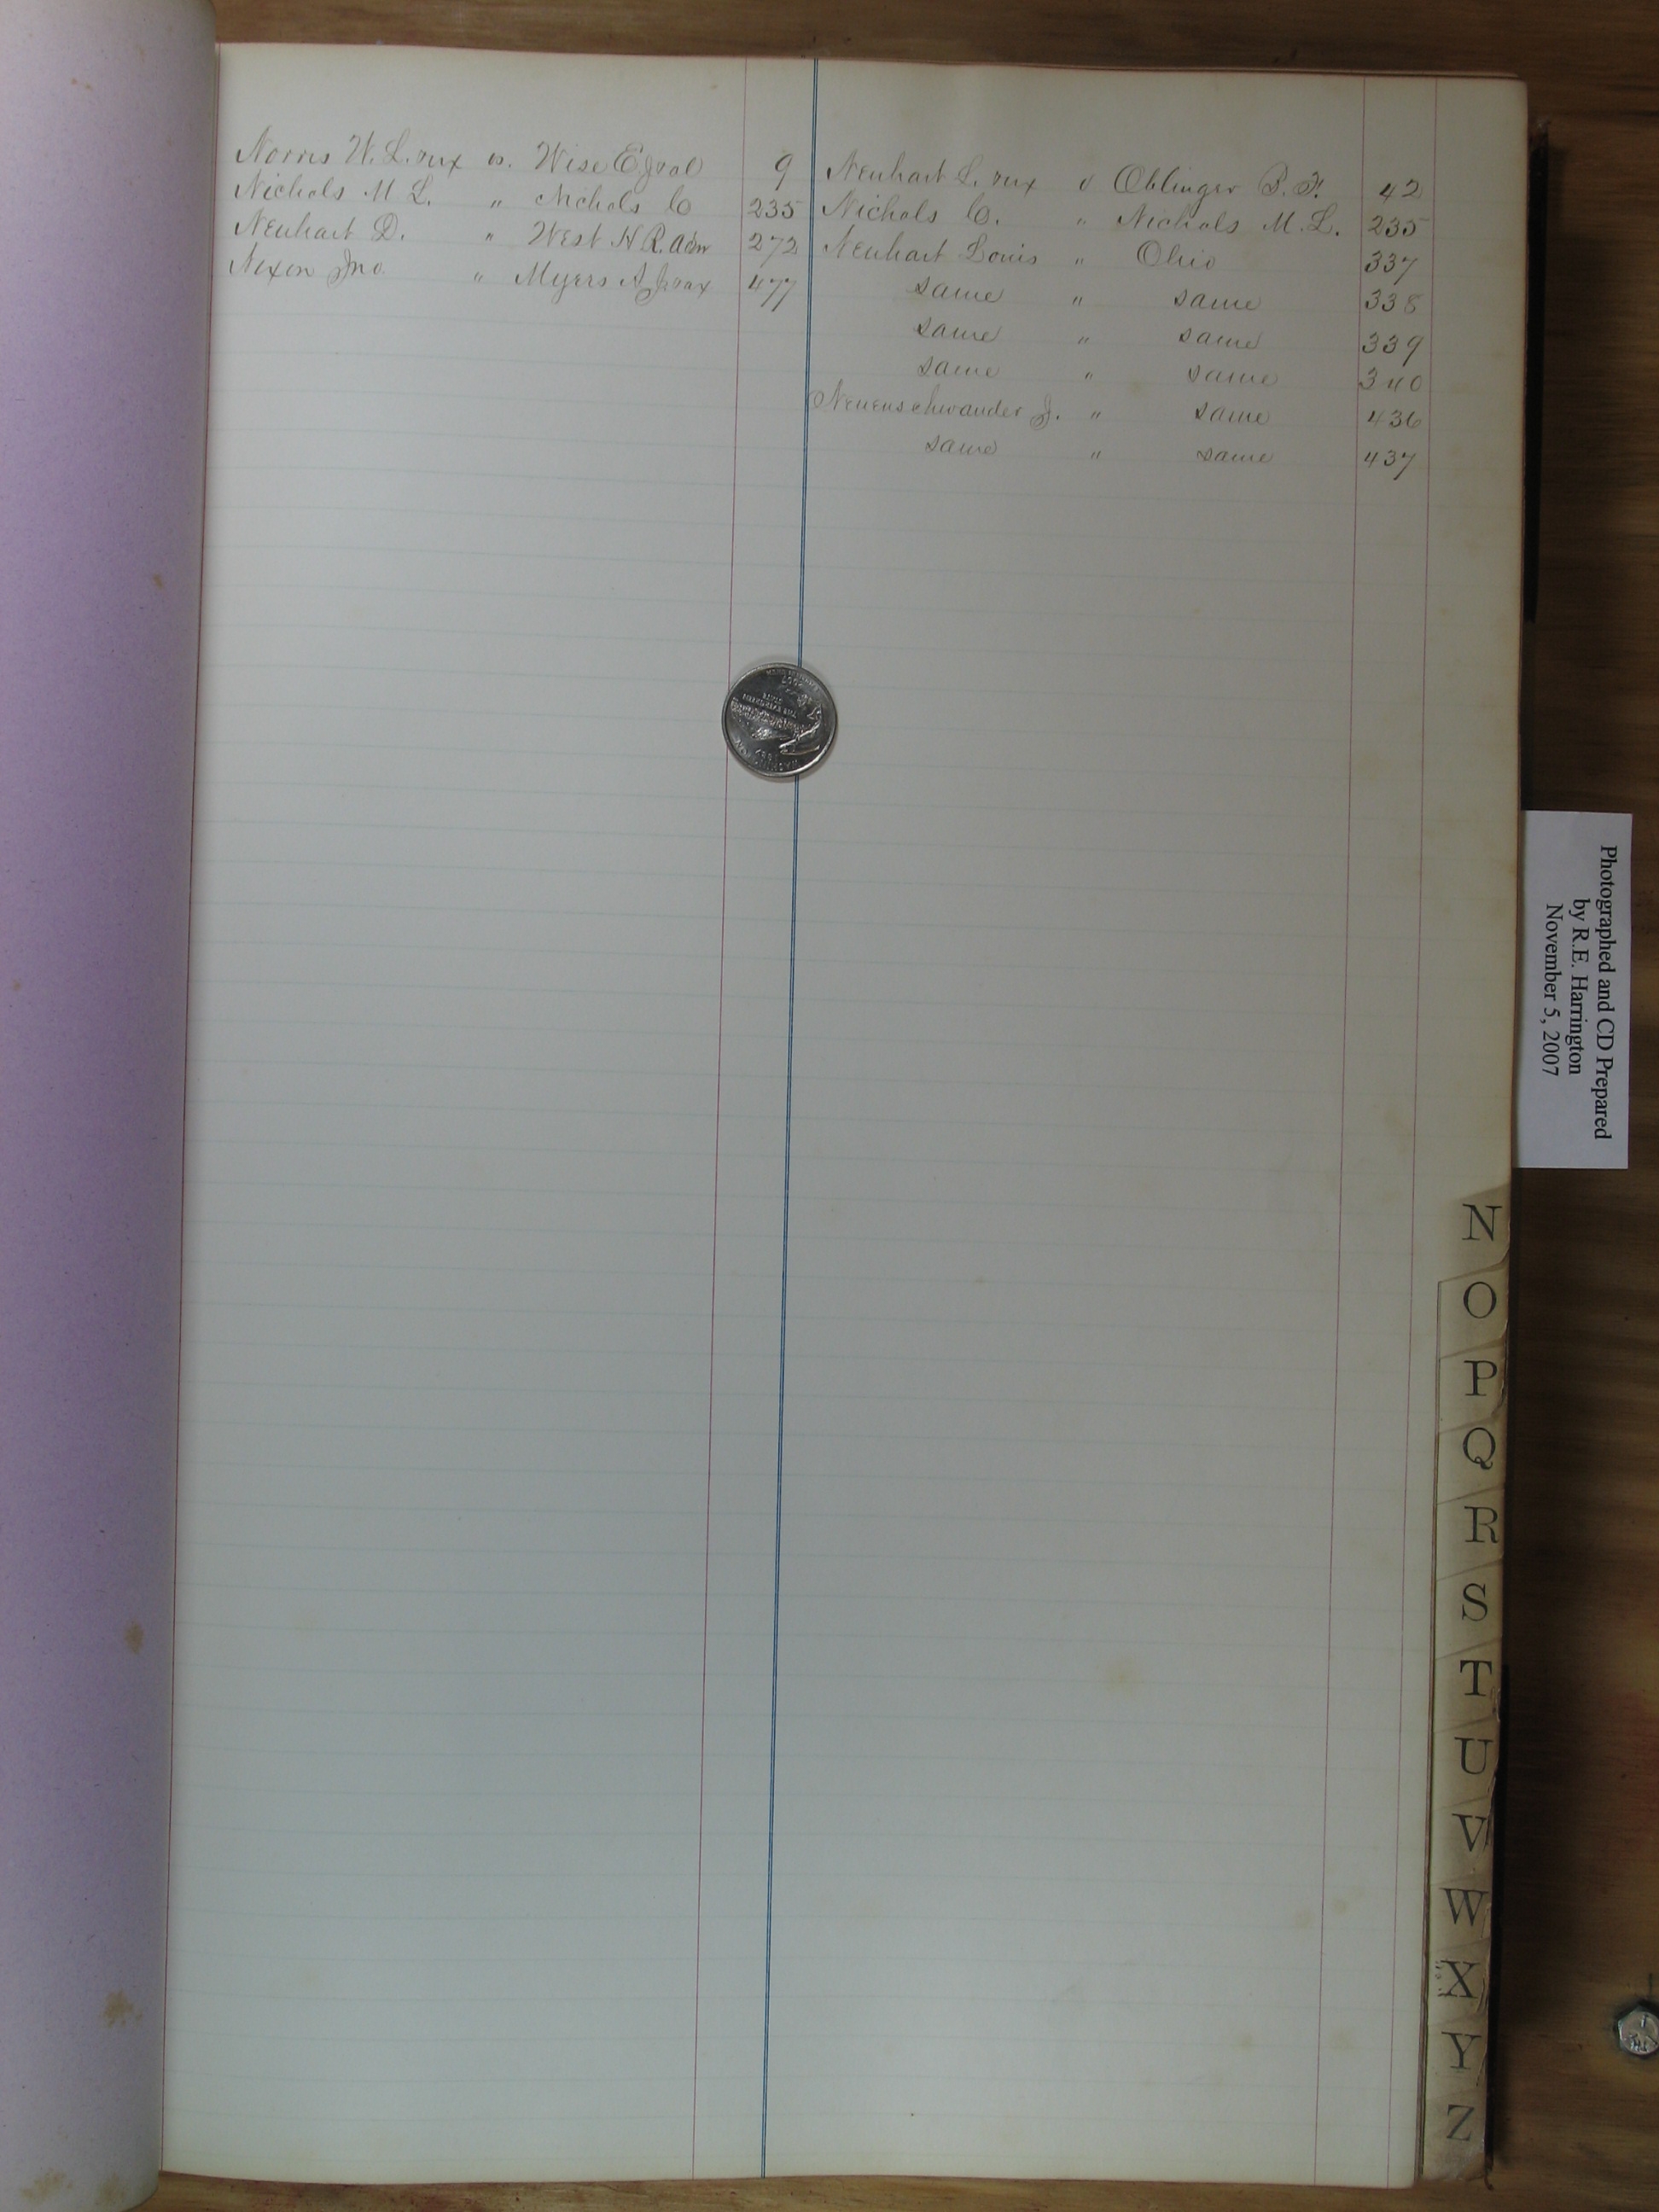 Norris W. L. & ux vs. Wise E. J. et al 9
Nichols M L. " Nichols C 235
Neuhart D. " West H R. Adm 272
Nixon Jno. " Myers A J 477
Neuhart L. & ux v Oblinger B. F. 42
Nichols C. " Nichols M. L. 235
Neuhart Louis " Ohio 337
same " same 338
same " same 339
same " same 340
Neuenschwander J. " same 436
same " same 437
WASHINGTON
1889
THE EVERGREEN
STATE
2007
Photographed and CD Prepared
by R.E. Harrington
November 5, 2007
N
O
P
Q
R
S
T
U
V
W
X
Y
Z